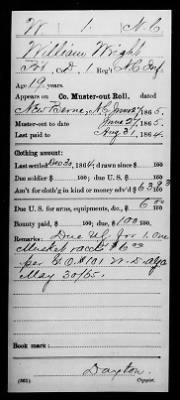 W. 1. N.C.
William Wright
Pvt., Co. D, 1 Reg't N.C. Inf.
Age 19 years.
Appears on Co. Muster-out Roll, dated
New Berne, N.C. June 27, 1865.
Muster-out to date June 27, 1865.
Last paid to Aug 31, 1864.
Clothing account:
Last settled Dec 31, 1864; drawn since $ 100
Due soldier $ 100; due U.S. $ 100
Am't for cloth'g in kind or money adv'd $ 63 93/100
Due U.S. for arms, equipments, &c., $ 6 00/100
Bounty paid $ 100; due $ 100 00/100
Remarks: Due U.S. for 1 one
Musket $6.00
per G.O. #101 W.D. a.g.o.
May 30/65.
Book mark:
Dayton
(361) Copyist.